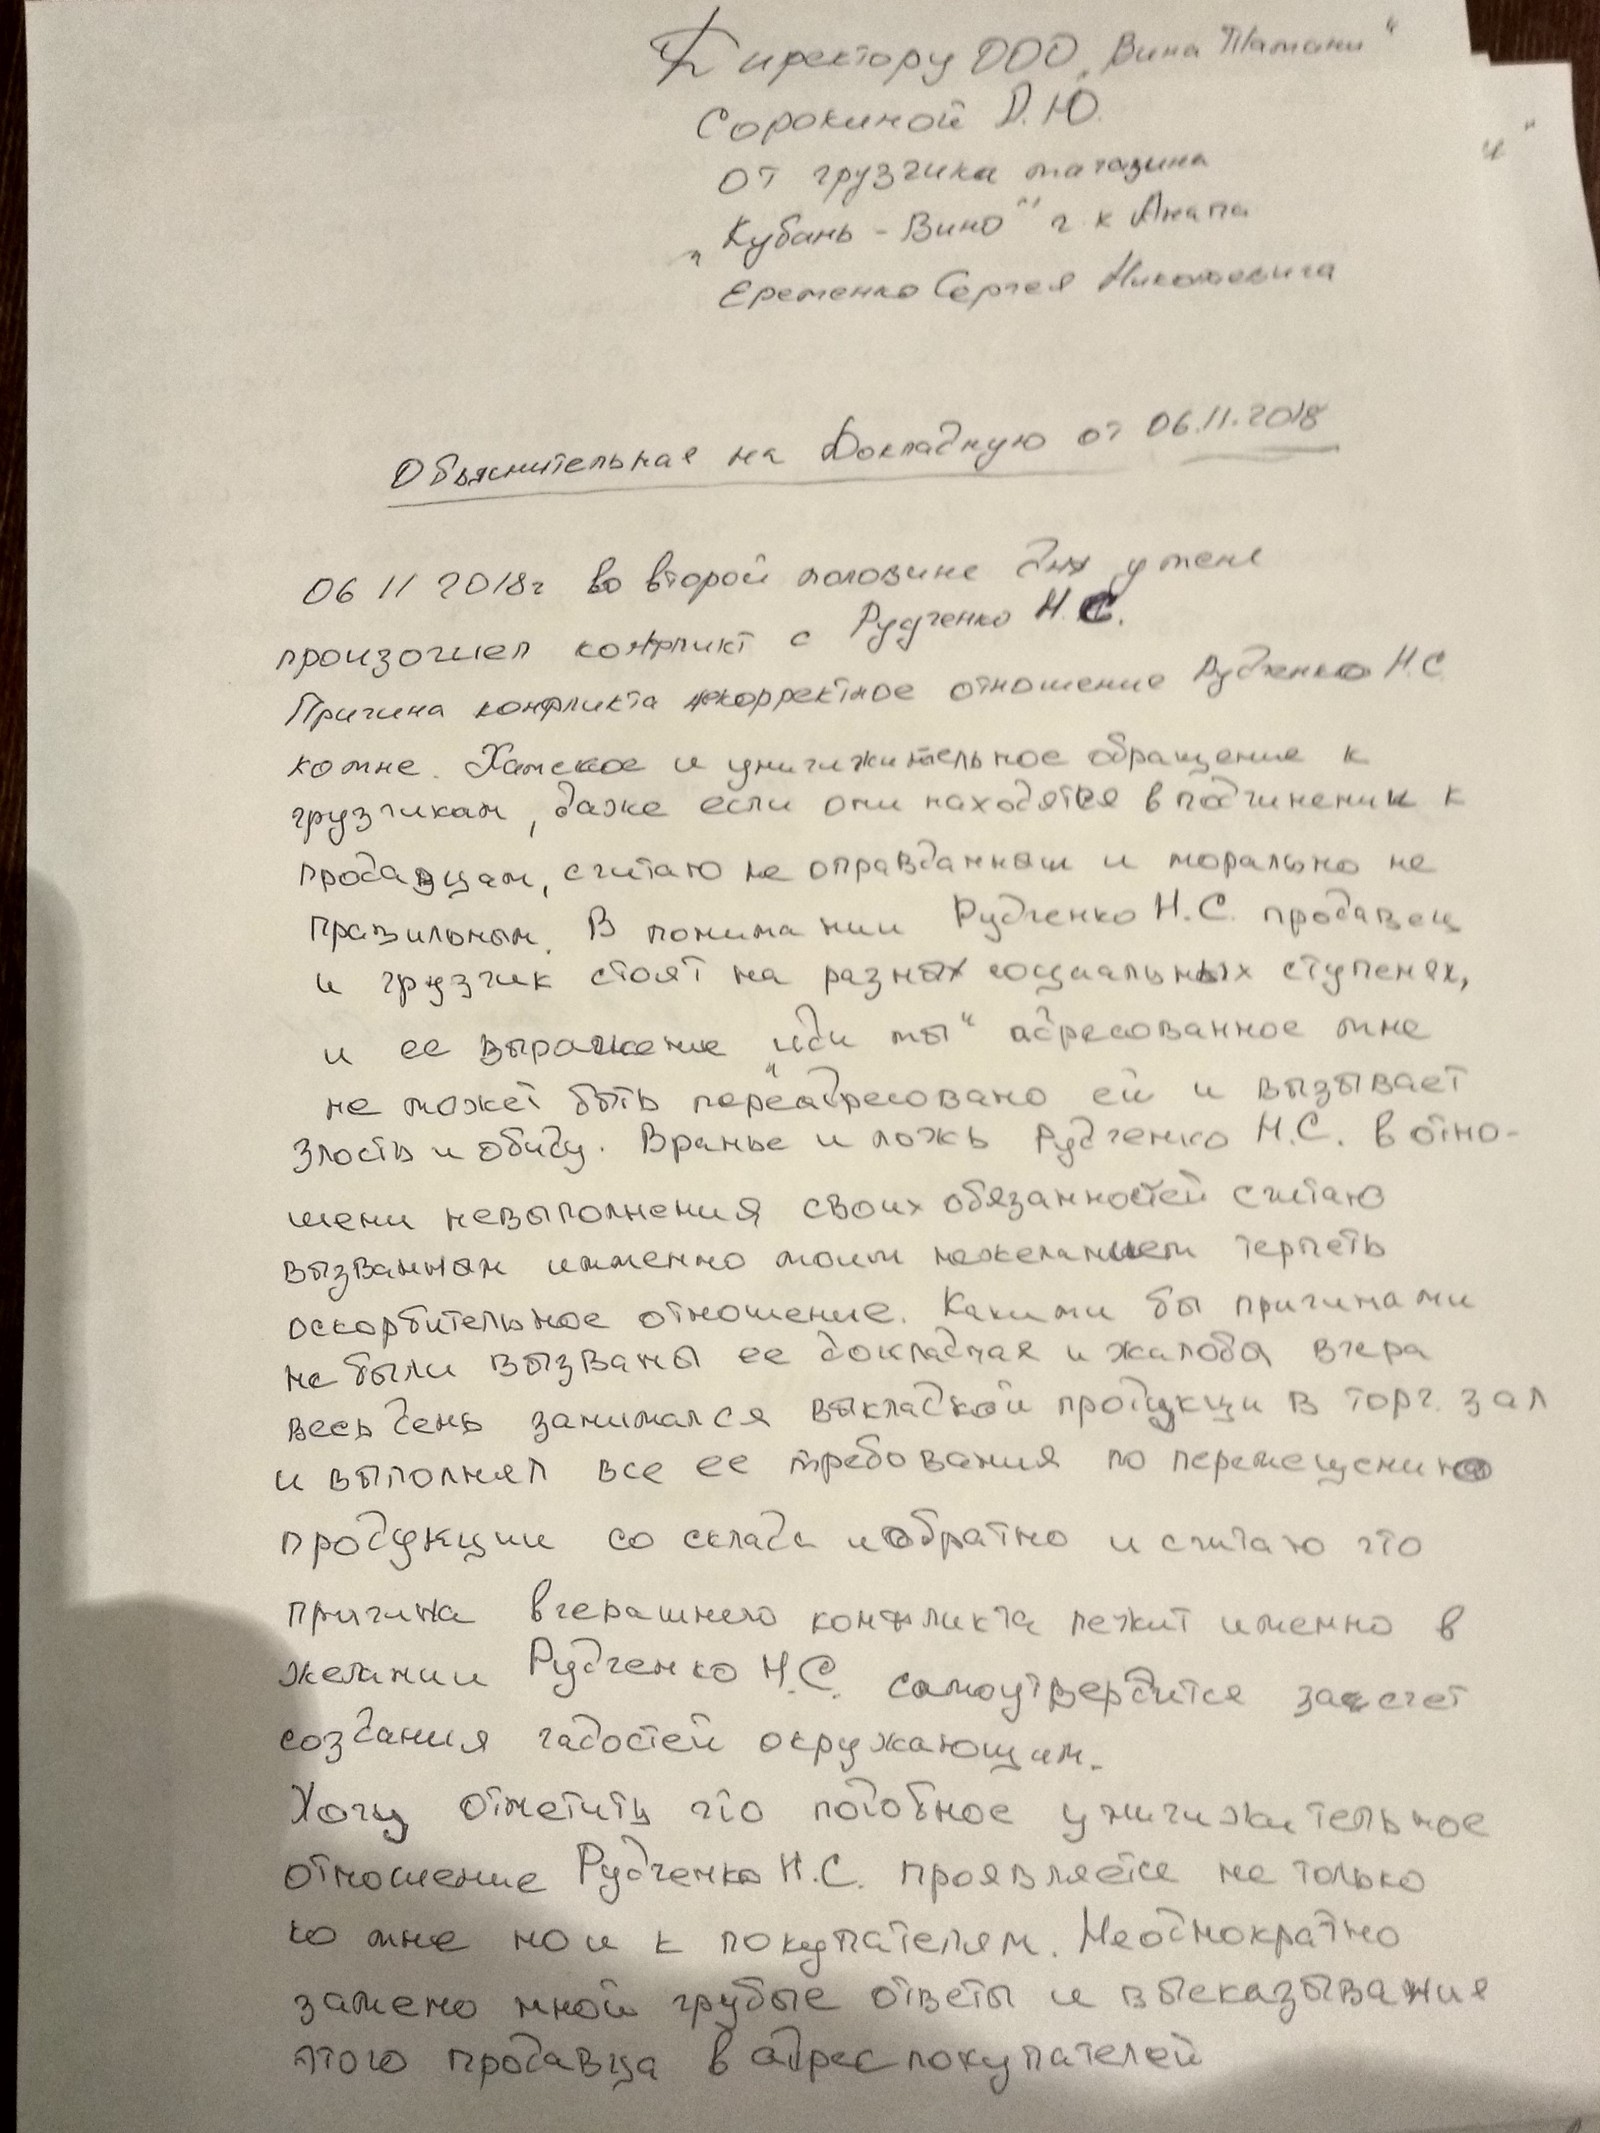 Директору ООО „Вина Тамани“
Сорокиной Д.Ю.
от грузчика магазина
„Кубань-Вино“ г.к Анапа
Еременко Сергея Николаевича
и“
Объяснительная на Докладную от 06.11.2018
06 11 2018г во второй половине дня у меня
произошел конфликт с Рудченко Н.С.
Причина конфликта некорректное отношение Рудченко Н.С
ко мне. Хамское и унигижительное обращение к
грузчикам, даже если они находятся в подчинении к
продавцам, считаю не оправданным и морально не
правильным. В понимании Рудченко Н.С. продавец
и грузчик стоят на разных социальных ступенях,
и ее выражение „иди ты“ адресованное мне
не может быть переадресовано ей и вызывает
злость и обиду. Вранье и ложь Рудченко Н.С. в отно-
шени невыполнения своих обязанностей считаю
вызванным именно моим нежеланием терпеть
оскорбительное отношение. Какими бы причинами
не были вызваны ее докладная и жалобы вчера
весь день занимался выкладкой продукци в торг. зал
и выполнял все ее требования по перемещению
продукции со склада и обратно и считаю что
причина вчерашнего конфликта лежит именно в
желании Рудченко Н.С. самоутвердится за счет
создания гадостей окружающим.
Хочу отметить что подобное унигижительное
отношение Рудченко Н.С. проявляется не только
ко мне но и к покупателям. Неоднократно
замено мной грубые ответы и высказывания
этого продавца в адрес покупателей